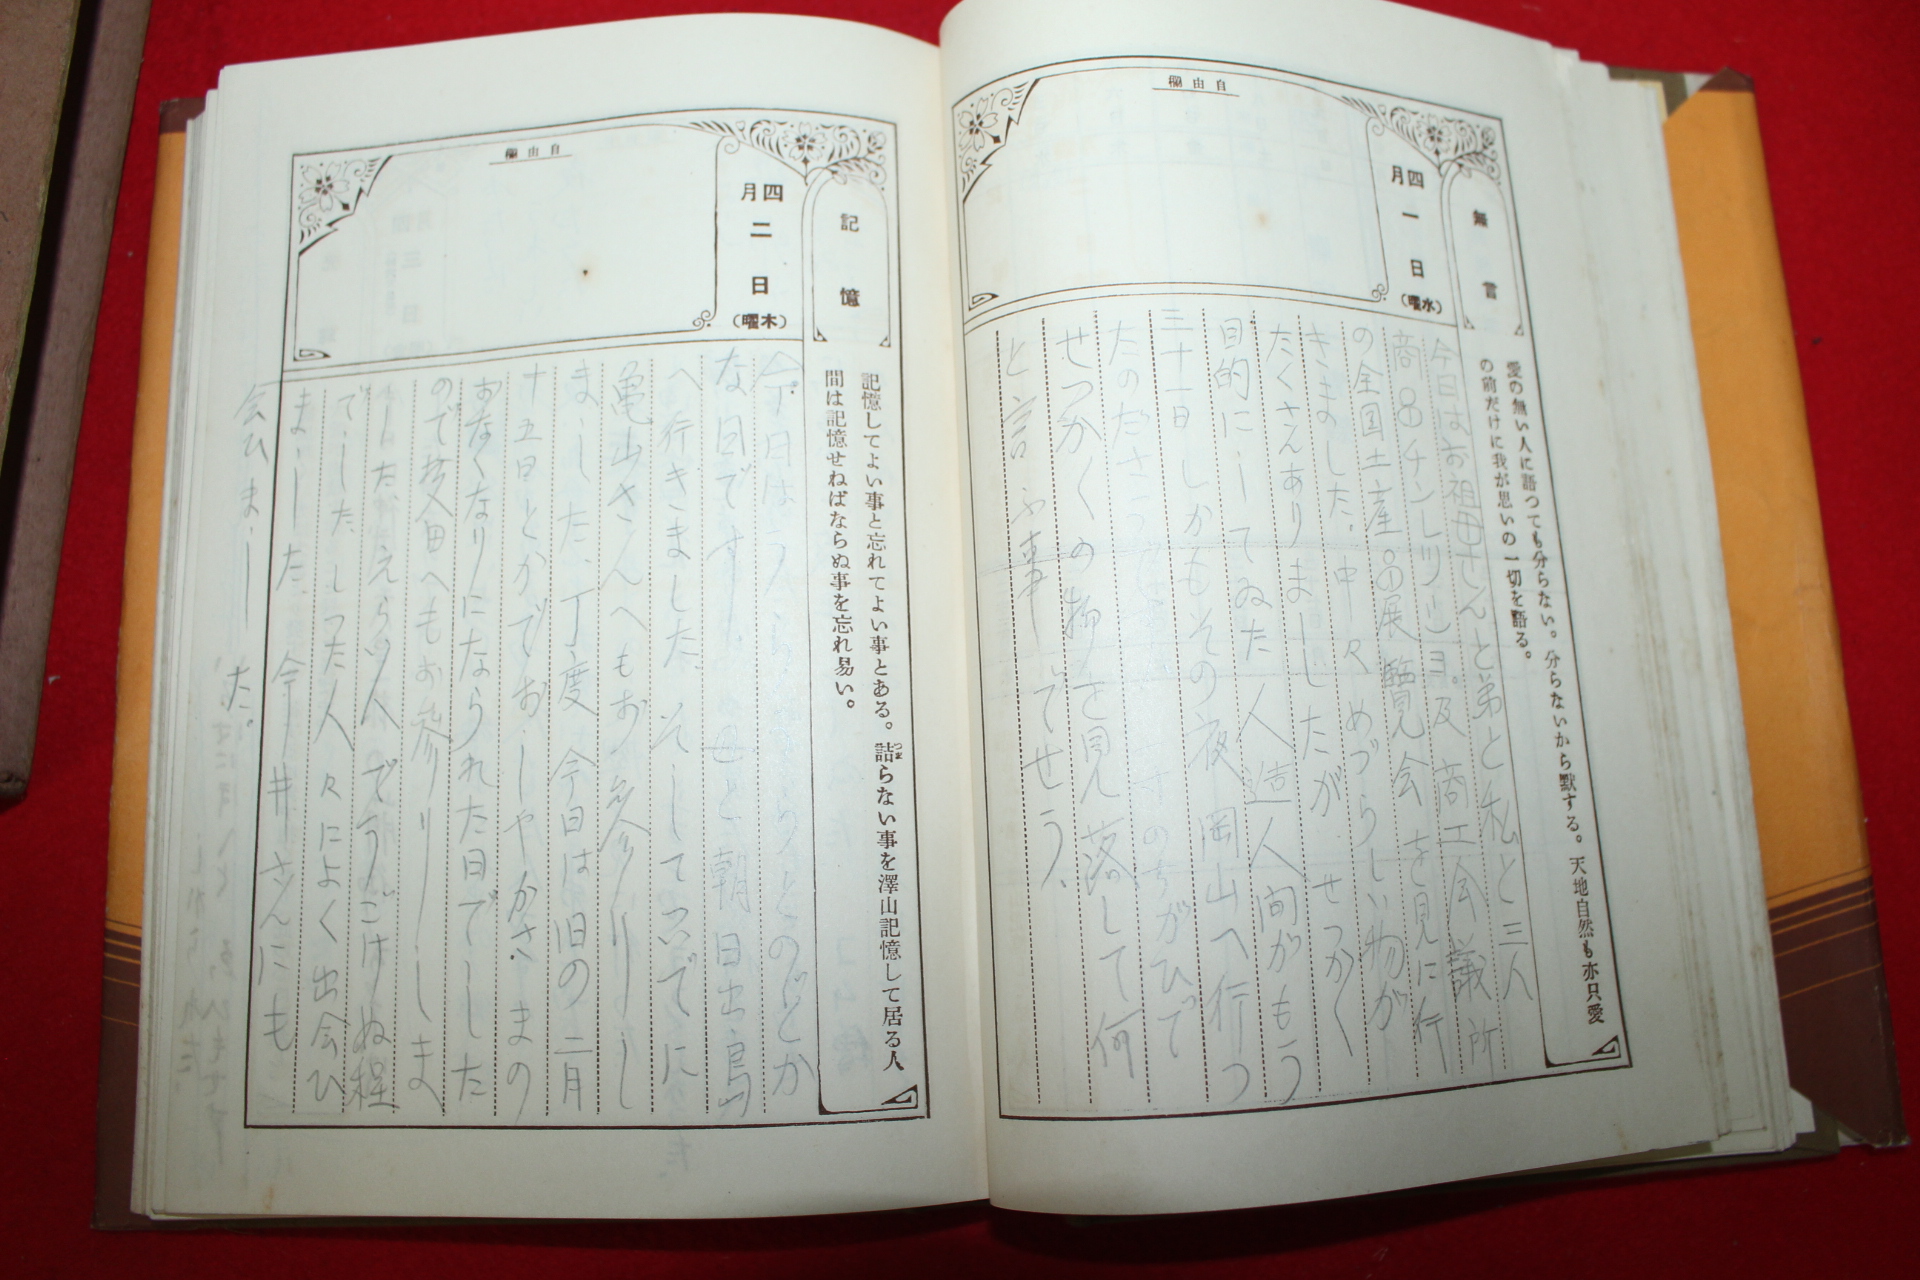 自由欄
四月一日
（水曜）
無言
愛の無い人に語つても分らない。分らないから默する。天地自然も亦只愛
の前だけに我が思いの一切を語る。
今日はお祖母さんと弟と私と三人
商工会議所
の全国土産品展覧会を見に行
きました。中々めづらしい物が
たくさんありましたが、せつかく
目的にしてゐた人造人間がもう
三十一日しかもその夜岡山へ行つ
たのださうで
せつかくの物を見落して何
と言ふ事でせう、
自由欄
四月二日
（木曜）
記憶
記憶してよい事と忘れてよい事とある。詰らない事を澤山記憶して居る人
つま
間は記憶せねばならぬ事を忘れ易い。
今日はうらうらとのどか
な日です。母と朝日出島
へ行きました、そしてついでに
亀山さんへもお参りし
ました、丁度今日は旧の二月
十五日とかでおしやかさまの
おなくなりになられた日でした
ので 田へもお参りしま
した、えらい人でうごけぬ程
でした、しつた人々によく出会ひ
ました、今井さんにも
会ひました。